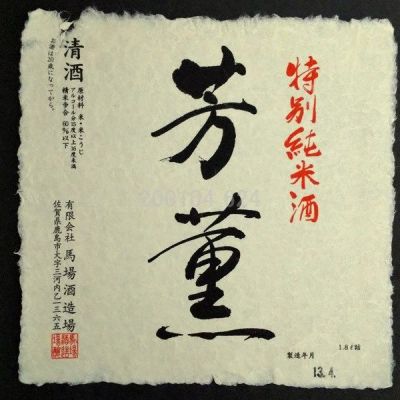 特別純米酒
芳薫
清酒
お酒は20歳になってから。
原材料 米・米こうじ
アルコール分15度以上16度未満
精米歩合 60%以下
有限会社 馬場酒造場
佐賀県鹿島市大字三河内乙一三六五
1.8ℓ詰
製造年月
13.4.